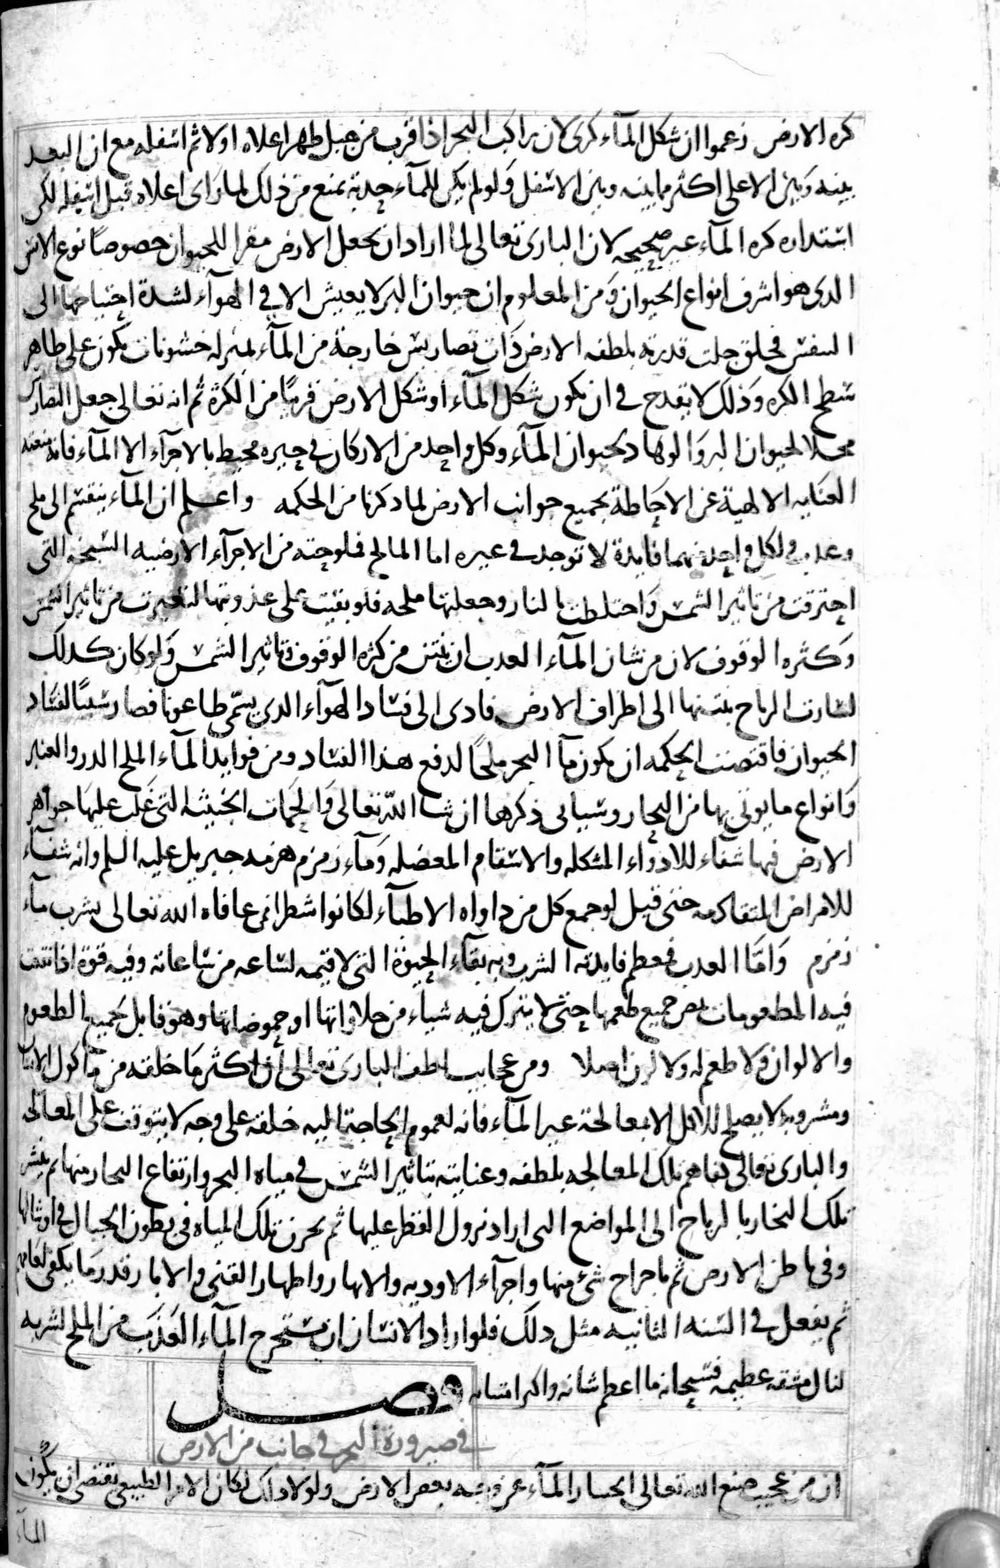 كره الارض زعموا ان شكل المآء كرى لان راكب البحر اذا قرب من جبل ظهر اعلاه اولا ثم اسفله مع ان البعد
بينه وبين الاعلى اكثر مما بينه وبين الاسفل ولو لم يكن للمآء حدبة تمنع من ذلك لما راى اعلاه قبل اسفله لكن
استداره كره المآء غير صحيحه لان البارى تعالى لما اراد ان يجعل الارض مقرا للحيوان خصوصا نوع الانس
الدى هو اشرف انواع الحيوان ومن المعلوم ان حيوان البر لا يعيش الا فى الهوآء لشدة احتياجها الى
التنفس فخلق جلت قدرته بلطفه الارض ذات تضاريس خارجة من المآء بمنزله خشونات تكون على ظاهر
سطح الكره وذلك لا يقدح فى ان يكون شكل المآء او شكل الارض قريبا من الكرة ثم انه تعالى جعل التضاريس
محلا لحيوان البر والوهاد لحيوان المآء وكل واحد من الاركان فى حيزه محيط بالاجزآء الا المآء فانه منعته
العنايه الالهية عن الاحاطة بجميع جوانب الارض لما ذكرنا من الحكمه واعلم ان المآء ينقسم الى ملح
وعذب ولكل واحد منهما فايدة لا توجد فى غيره اما المالح فملوحته من الاجزآء الارضيه السبخه التى
احترقت من تاثير الشمس واختلطت بالمآء وجعلتها ملحه فلو بقيت على عذوبتها لتغيرت من تاثير الشمس
وكثره الوقوف لان من شان المآء العدب ان ينتن من كثره الوقوف وتاثير الشمس ولو كان كدلك
لسارت الرياح بنتنها الى اطراف الارض فادى الى فساد الهوآء الدى يسمى طاعونا فصار سببا لفساد
الحيوان فاقتضت الحكمه ان يكون مآ البحر ملحا لدفع هذا الفساد ومن فوايد المآء الملح الدر والعنبر
وانواع ما يوتى بها من البحار وسياتى ذكرها ان شا الله تعالى والحمات الخبيثه التى غلب عليها جواهر
الارض فيها شفاء للادوآء المشكله والاسقام المعضله ومآء زمزم هزمه جبريل عليه السلم وانه شفآء
للامراض المتفاوته حتى قيل لو جمع كل من داواه الاطبآء لكانوا شطر من عافاه الله تعالى بشرب مآء
زمزم واما العدب فمعظم فايدته الشرب وبه بقآء الحيوة التى لا قيمه لساعه من ساعاته وفيه قوة اذا نقعت
فيه المطعومات مص جميع طعمها حتى لا يترك فيه شيا من حلاواتها او حموضاتها وهو قابل لجميع الطعوم
والالوان ولا طعم له ولا لون اصلا ومن عجايب لطف البارى تعالى ان اكثر ما خلقه من مآكول الانسان
ومشروبه لا يصلح للاكل الا بمعالجة غير المآء فانه لعموم الحاجة اليه خلقه على وجه لا يتوقف على المعالجه
والبارى تعالى كفاهم تلك المعالجه بلطفه وعنايته بتاثير الشمس فى مياه البحر وارتفاع البخار منها ثم ينشر
تلك البخار بالرياح الى المواضع التى اراد نزول القطر عليها ثم يخزن تلك المياه فى بطون الجبال فى اوشالها
وفى باطن الارض ثم باخراج شئ منها واجرآء الاوديه والانهار واظهار القنى والابار قدر ما يكفى لعامهم
ثم يفعل فى السنه الثانيه مثل دلك فلو اراد الانسان ان يستخرج المآء العذب من الملح لشربه
لنال مشقه عظيمه فسبحانه ما اعظم شانه واكبر امتنانه
فصل
فى صيرورة البحر فى جانب من الارض
ان من عجيب صنع الله تعالى انحسار المآء عن وجه بعض الارض ولولا دلك لكان الامر الطبيعى تقتضى ان يكون
المآء